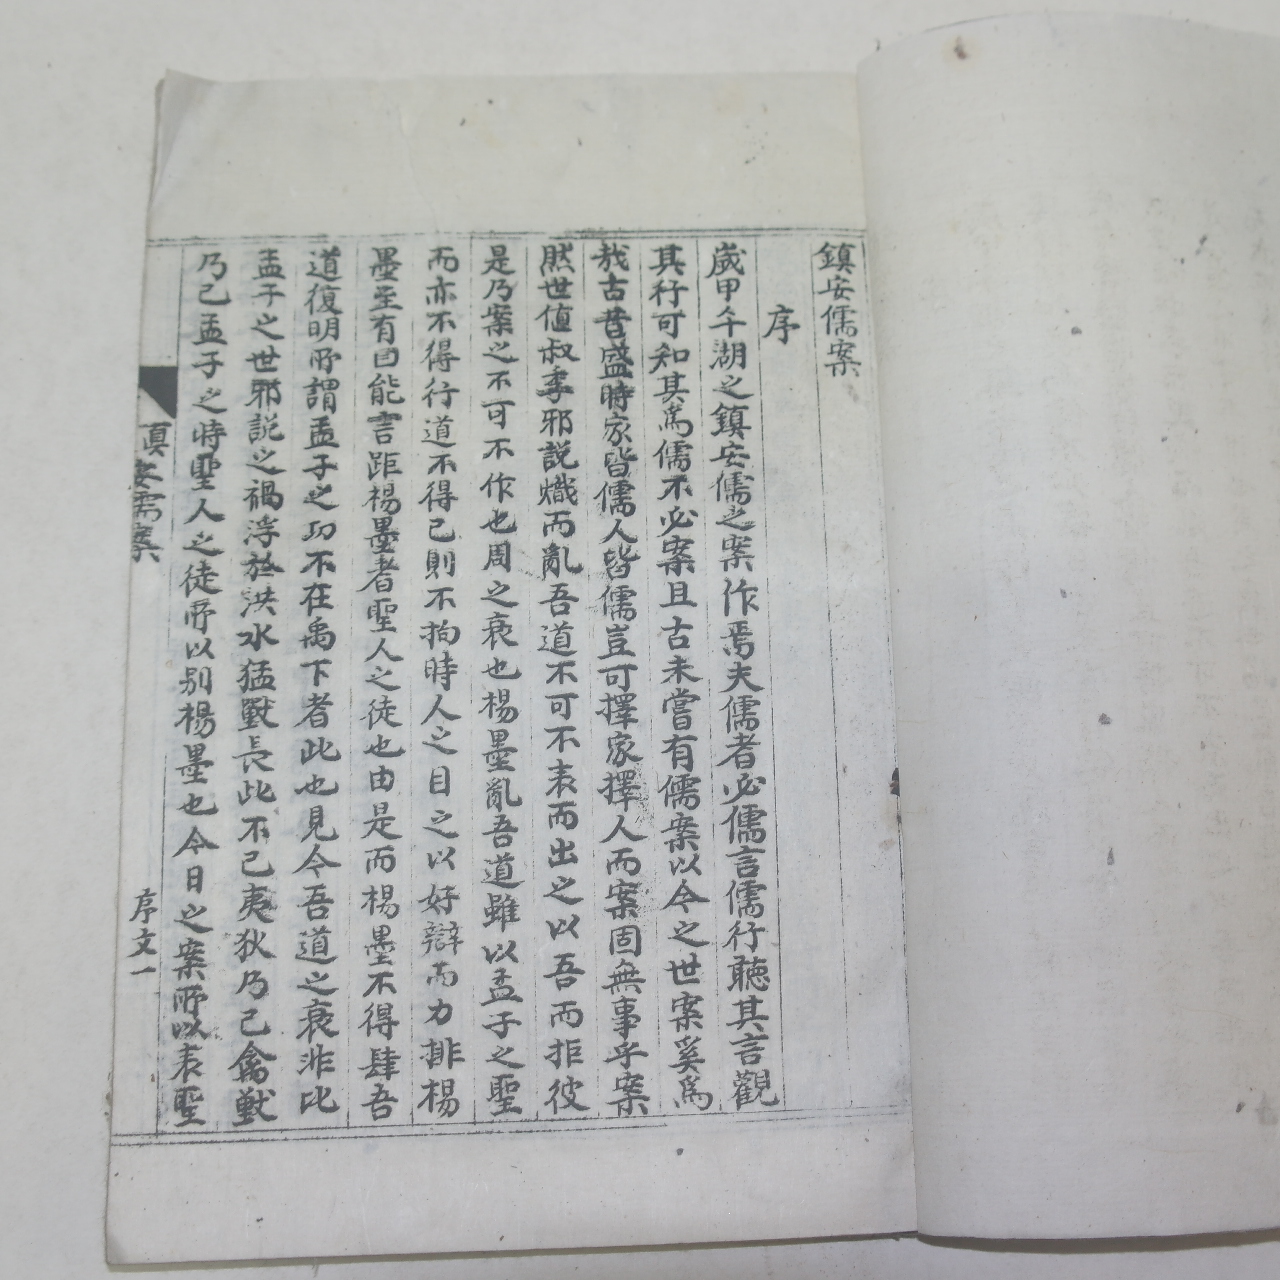 鎮安儒案
序
歲甲午湖之鎮安儒之案作焉夫儒者必儒言儒行聽其言觀
其行可知其爲儒不必案且古未嘗有儒案以今之世案奚爲
哉古昔盛時家皆儒人皆儒豈可擇家擇人而案固無事乎案
然世値叔季邪說熾而亂吾道不可不表而出之以吾而拒彼
是乃案之不可不作也周之衰也楊墨亂吾道雖以孟子之聖
而亦不得行道不得已則不拘時人之目之以好辯而力排楊
墨至有曰能言距楊墨者聖人之徒也由是而楊墨不得肆吾
道復明所謂孟子之功不在禹下者此也見今吾道之衰非比
孟子之世邪說之禍浮於洪水猛獸長此不已夷狄乃已禽獸
乃已孟子之時聖人之徒所以別楊墨也今日之案所以表聖
眞安儒案
序文一